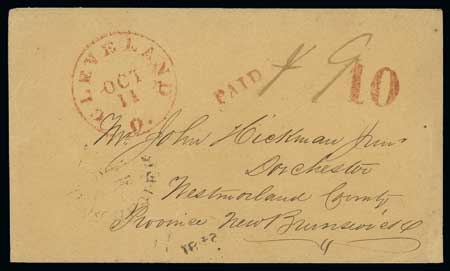 CLEVELAND O.
OCT
11
PAID
10
Mr. John Hickman Junr
Dorchester
Westmorland County
Province New Brunswick